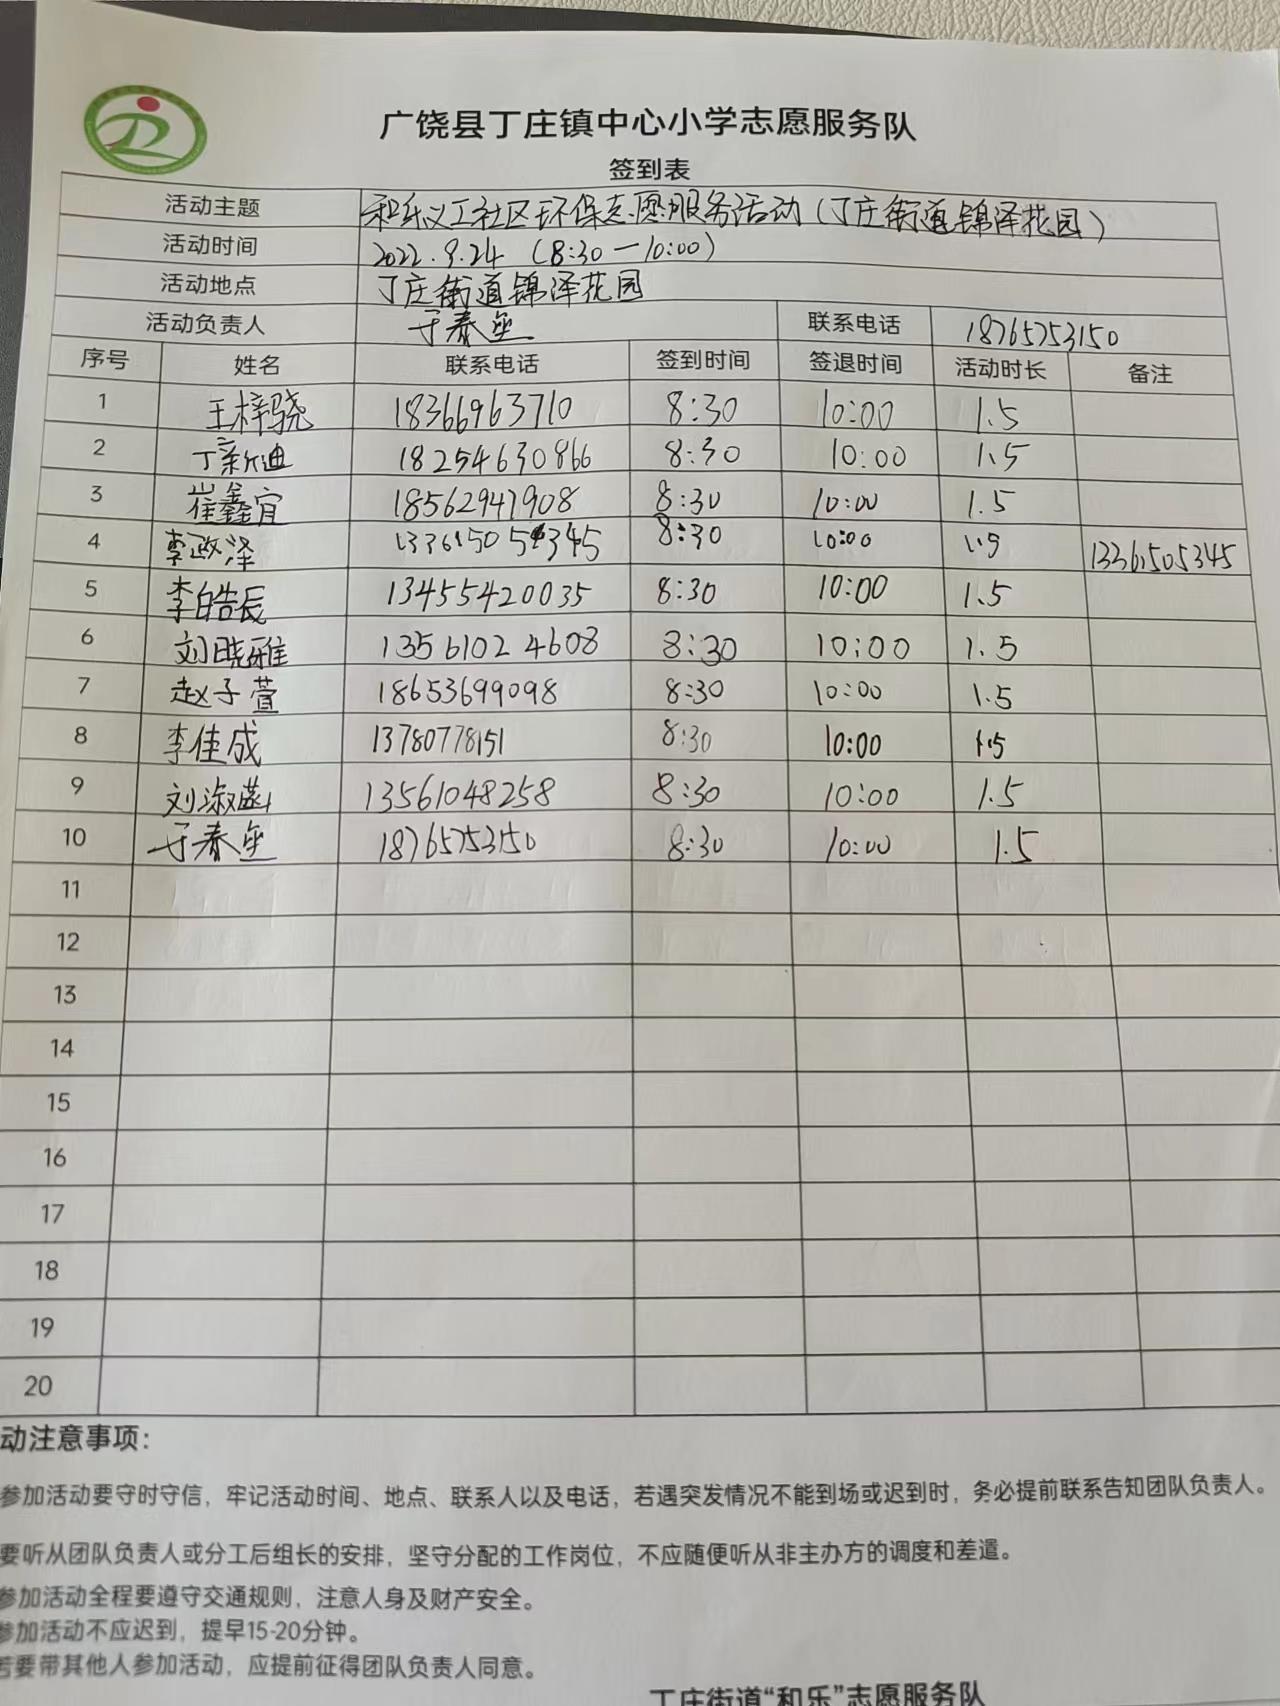 广饶县丁庄镇中心小学志愿服务队
签到表
活动主题 和乐义工社区环保志愿服务活动(丁庄街道锦泽花园)
活动时间 2022.9.24 (8:30—10:00)
活动地点 丁庄街道锦泽花园
活动负责人 于春 联系电话 18765753150
序号 姓名 联系电话 签到时间 签退时间 活动时长 备注
1 王梓骁 18366963710 8:30 10:00 1.5
2 丁新迪 18254630866 8:30 10:00 1.5
3 崔鑫宜 18562947908 8:30 10:00 1.5
4 李政泽 13361505345 8:30 10:00 1.5 13361505345
5 李皓辰 13455420035 8:30 10:00 1.5
6 刘晓雅 13561024608 8:30 10:00 1.5
7 赵子萱 18653699098 8:30 10:00 1.5
8 李佳成 13780778151 8:30 10:00 1.5
9 刘淑 13561048258 8:30 10:00 1.5
10 于春 18765753150 8:30 10:00 1.5
11
12
13
14
15
16
17
18
19
20
动注意事项:
参加活动要守时守信,牢记活动时间、地点、联系人以及电话,若遇突发情况不能到场或迟到时,务必提前联系告知团队负责人。
要听从团队负责人或分工后组长的安排,坚守分配的工作岗位,不应随便听从非主办方的调度和差遣。
参加活动全程要遵守交通规则,注意人身及财产安全。
参加活动不应迟到,提早15-20分钟。
若要带其他人参加活动,应提前征得团队负责人同意。
丁庄街道“和乐”志愿服务队